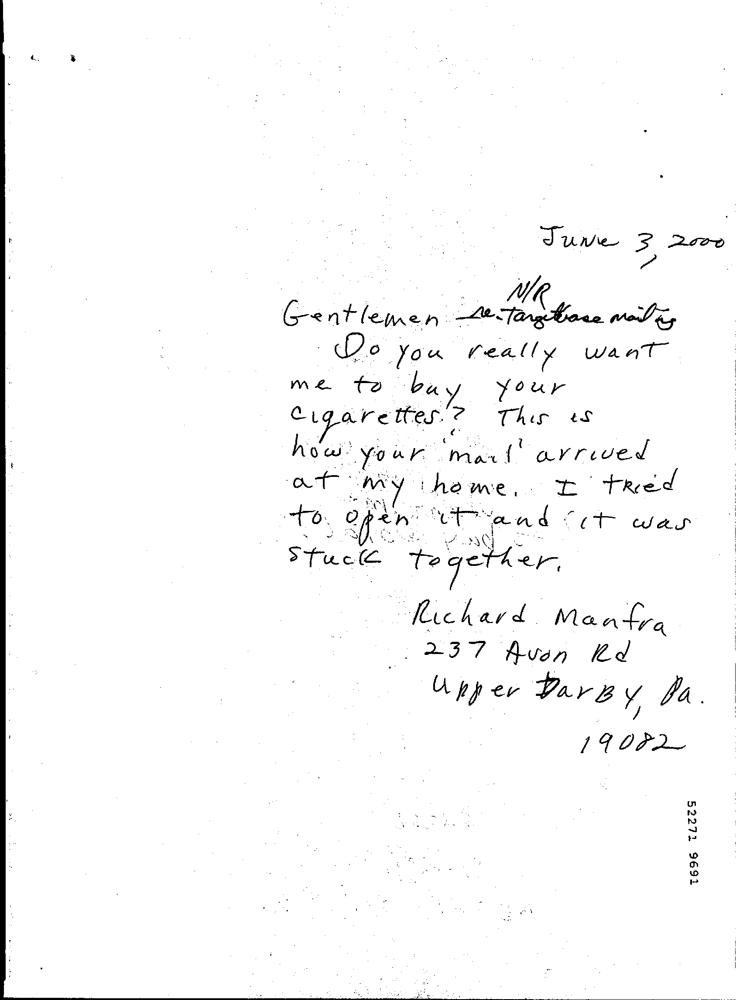 June 3, 2000
N/R
Gentlemen re: Targetbase mailing
Do you really want
me to buy your
cigarettes? This is
how your 'mail' arrived
at my home. I tried
to open it and it was
stuck together.
Richard Manfra
237 Avon Rd
Upper Darby, Pa.
19082
52271 9691